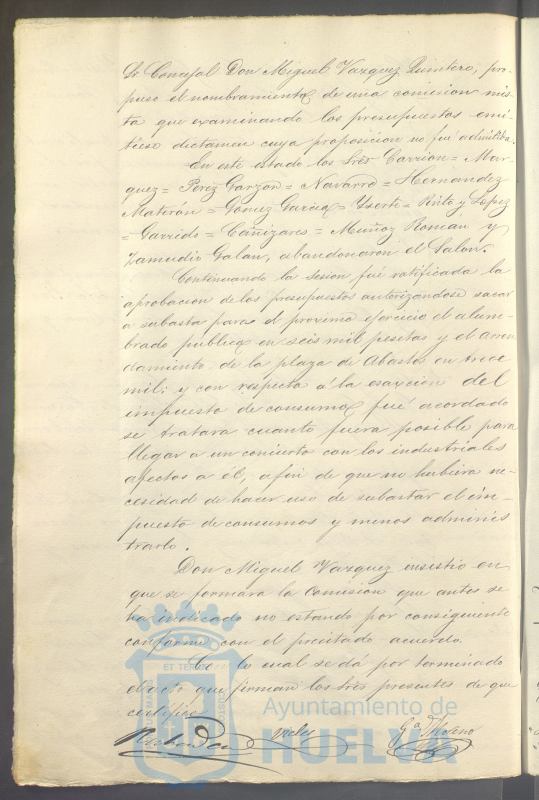 Sr Concejal Don Miguel Vazquez Quintero, pro-
puso el nombramiento de una comision mis-
ta que examinando los presupuestos emi-
tiese dictamen cuya proposicion no fué admitida.
En este estado los Sres Carrion= Mar-
quez= Perez Garzon= Navarro= Hernandez
Materán= Gomez Garcia= Yserte= Pinto y Lopez
=Garrido= Cañizares= Muñoz Roman y
Zamudio Galan, abandonaron el Salon.
Continuando la sesion fué ratificada la
aprobacion de los presupuestos autorizandose sacar
a subasta para el proximo ejercicio el alum-
brado publico en seis mil pesetas y el arren
damiento de la plaza de Abastos en trece
mil; y con respecto á la esaccion del
impuesto de consumos fué acordado
se tratara cuanto fuera posible para
llegar a un concierto con los industriales
afectos a él, a fin de que no hubiera ne-
cesidad de hacer uso de subastar el im-
puesto de consumos y menos adminis
trarlo.
Don Miguel Vazquez insistió en
que se formara la Comision que antes se
ha indicado no estando por consiguiente
conforme con el precitado acuerdo.
Con lo cual se dá por terminado
el acto que firman los Sres presentes de que
certifico
Gª Moreno
Ayuntamiento de
HUELVA